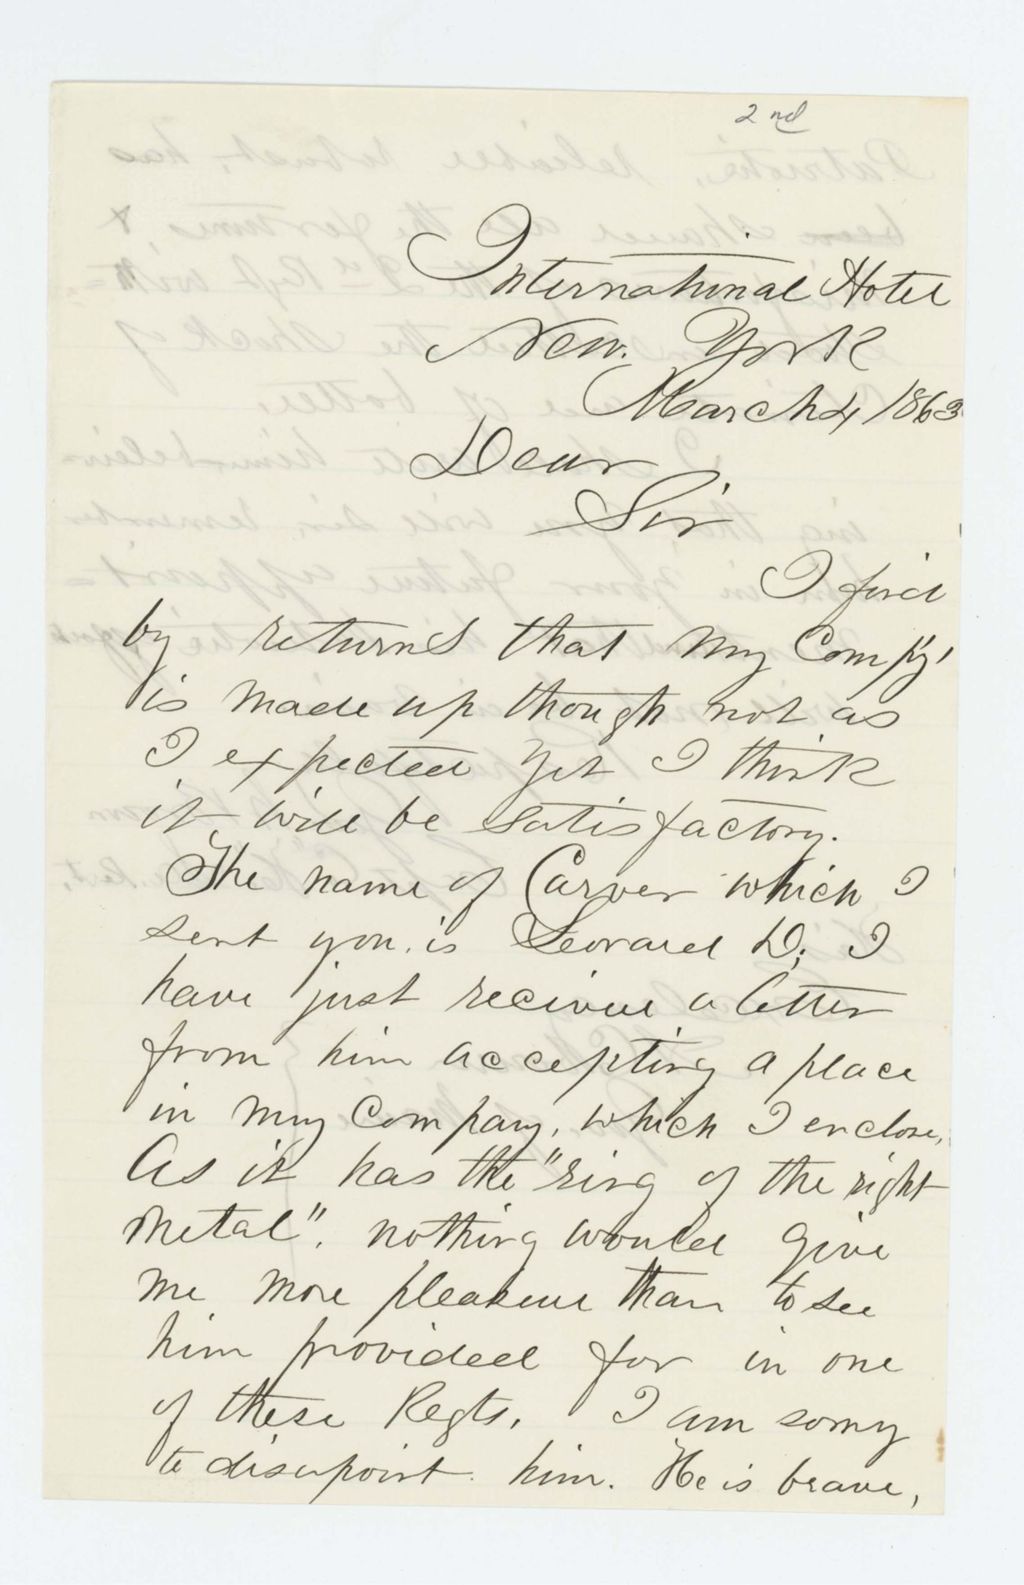 2nd
International Hotel
New. York
March 4 1863
Dear
Sir
I find
by returns that my Comp'y'
is made up though not as
I expected yet I think
it will be satisfactory.
The name of Carver which I
sent you is Leonard D; I
have just recived a letter
from him accepting a place
in my Company, which I enclose,
As it has the "ring of the right
metal". nothing would give
me more pleasure than to see
him provided for in one
of these Regts. I am sorry
to disapoint him. He is brave,